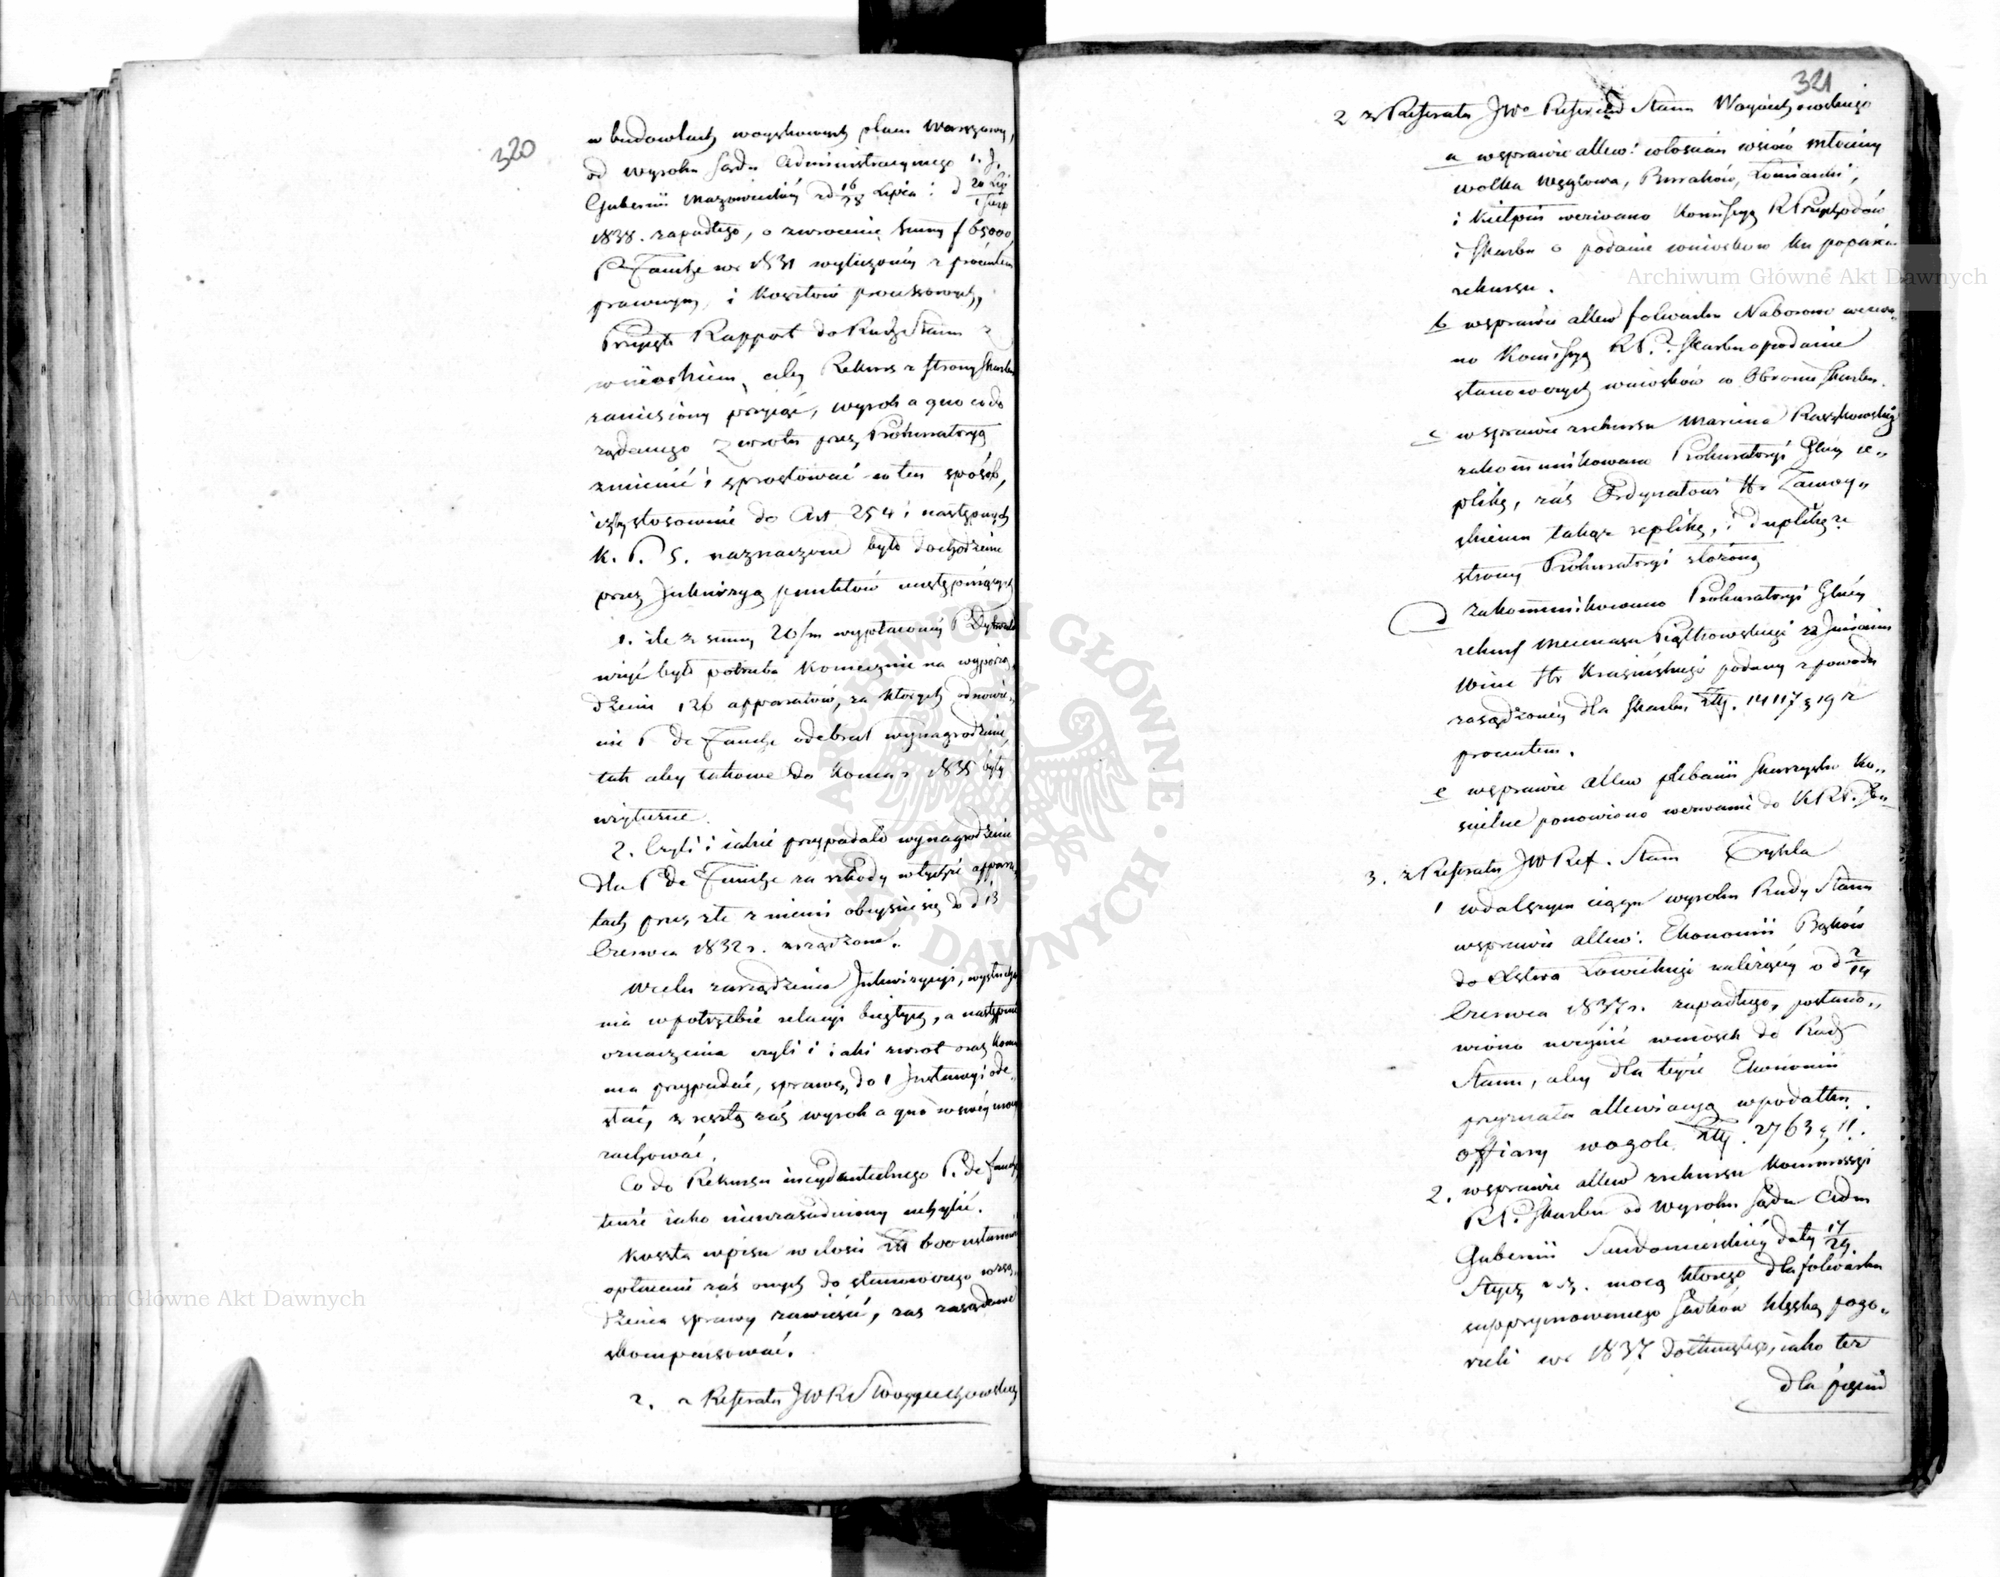 320
w budowlach woyskowych placu Warszawy,
od wyroku Sądu Administracyinego 1. J.
Gubernii Mazowieckiéy z d 16/28 Lipca i d 20 Lip/1 Sierp
1838. zapadłego, o zwrocenie Summy f 65000
P. Fauche w r 1831 wyliczonéy z procentem
prawnym, i Kosztów processowych,
Przyięto Rapport do Rady Stanu z
wnioskiem, aby Rekurs z strony Skarbu
zaniesiony przyiąć, wyrok a quo co do
żądanego zwrotu przez Prokuratoryą
zmienić i sprostować w ten sposób,
iżby stosownie do Art 254 i następnych
K. P. S. naznaczone było dochodzenie
przez Inkwizycyą punktów następuiących
1. ile z summy 20/m wypłaconéy P.
wziąć było potrzeba koniecznie na wyporzą
dzenie 126 apparatów, za których odnowie„
nie P de Fauche odebrał wynagrodzenie,
tak aby takowe do końca r 1835 były
użyteczne.
2. Czyli i iakie przypadało wynagrodzenie
dla P de Fauche za szkody w tychże appara„
tach przez złe z niemi obeyście się do d 13
Czerwca 1832 r. zrządzone.
W celu zarządzenia Inkwizycyi, wysłucha
nia w potrzebie relacyi biegłych, a następnie
oznaczenia czyli i iaki zwrot oraz komu
ma przypadać, sprawę do 1 Instancyi ode„
słać, z resztą zaś wyrok a quo w swéy mocy
zachować.
Co do Rekursu incydentalnego P. de Fauche
tenże iako nieuzasadniony uchylić.
Koszta wpisu w ilości Złł 600 ustanowić
opłacenie zaś onych do stanowczego osą„
dzenia sprawy zawiesić, zaś zasądzone
skompensować.
2. z Referatu JW RS Woyciechowskiego
321
2 z Referatu JWo Referend Stanu Woyciechowskiego
a w sprawie allew: włościan wsiów Młociny
wolka Węglowa, Buraków, Łomianki,
i Kiełpin wezwano Kommissyą R Przychodów
i Skarbu o podanie wniosków ku poparciu
rekursu.
b w sprawie allew folwarku Naborowo wezwa„
no Komissyą R P. i Skarbu o podanie
stanowczych wniosków w Obronie Skarbu.
c w sprawie z rekursu Marcina Raszkowskiego
zakommunikowano Prokuratoryi Głnéy re„
plikę, zaś Ordynatowi Hr Zamoy„
skiemu takąż replikę, i duplikę ze
strony Prokuratoryi złożoną
d zakommunikowano Prokuratoryi Głnéy
rekurs Mecenasa Piątkowskiego za Imieniem
Wine Hr Krasińskiego podany z powodu
zasądzonéy dla Skarbu Złł. 14117 g 19 z
procentem.
e w sprawie allew plebanii Skurzysko Ko„
ścielne ponowiono wezwanie do KRP. i Sk„
3. z Referatu JW Ref. Stanu Tykla
1 w dalszym ciągu wyroku Rady Stanu
w sprawie allew: Ekonomii Bąków
do Xstwa Łowickiego należącéy z d 2/14
Czerwca 1837 r. zapadłego, postano„
wiono uczynić wniosek do Rady
Stanu, aby dla teyże Ekonomii
przyznała allewiacyą w podatku
offiary wogole Złł. 2763 g 11.
2. w sprawie allew z rekursu Kommissyi
R P. i Skarbu od wyroku Sądu Adm
Gubernii Sandomierskiéy daty 17/29
Stycz r. b. mocą którego dla folwarku
supprymowanego Sadków klęską pogo„
rzeli w r 1837 dotkniętego, iako też
dla pięciu